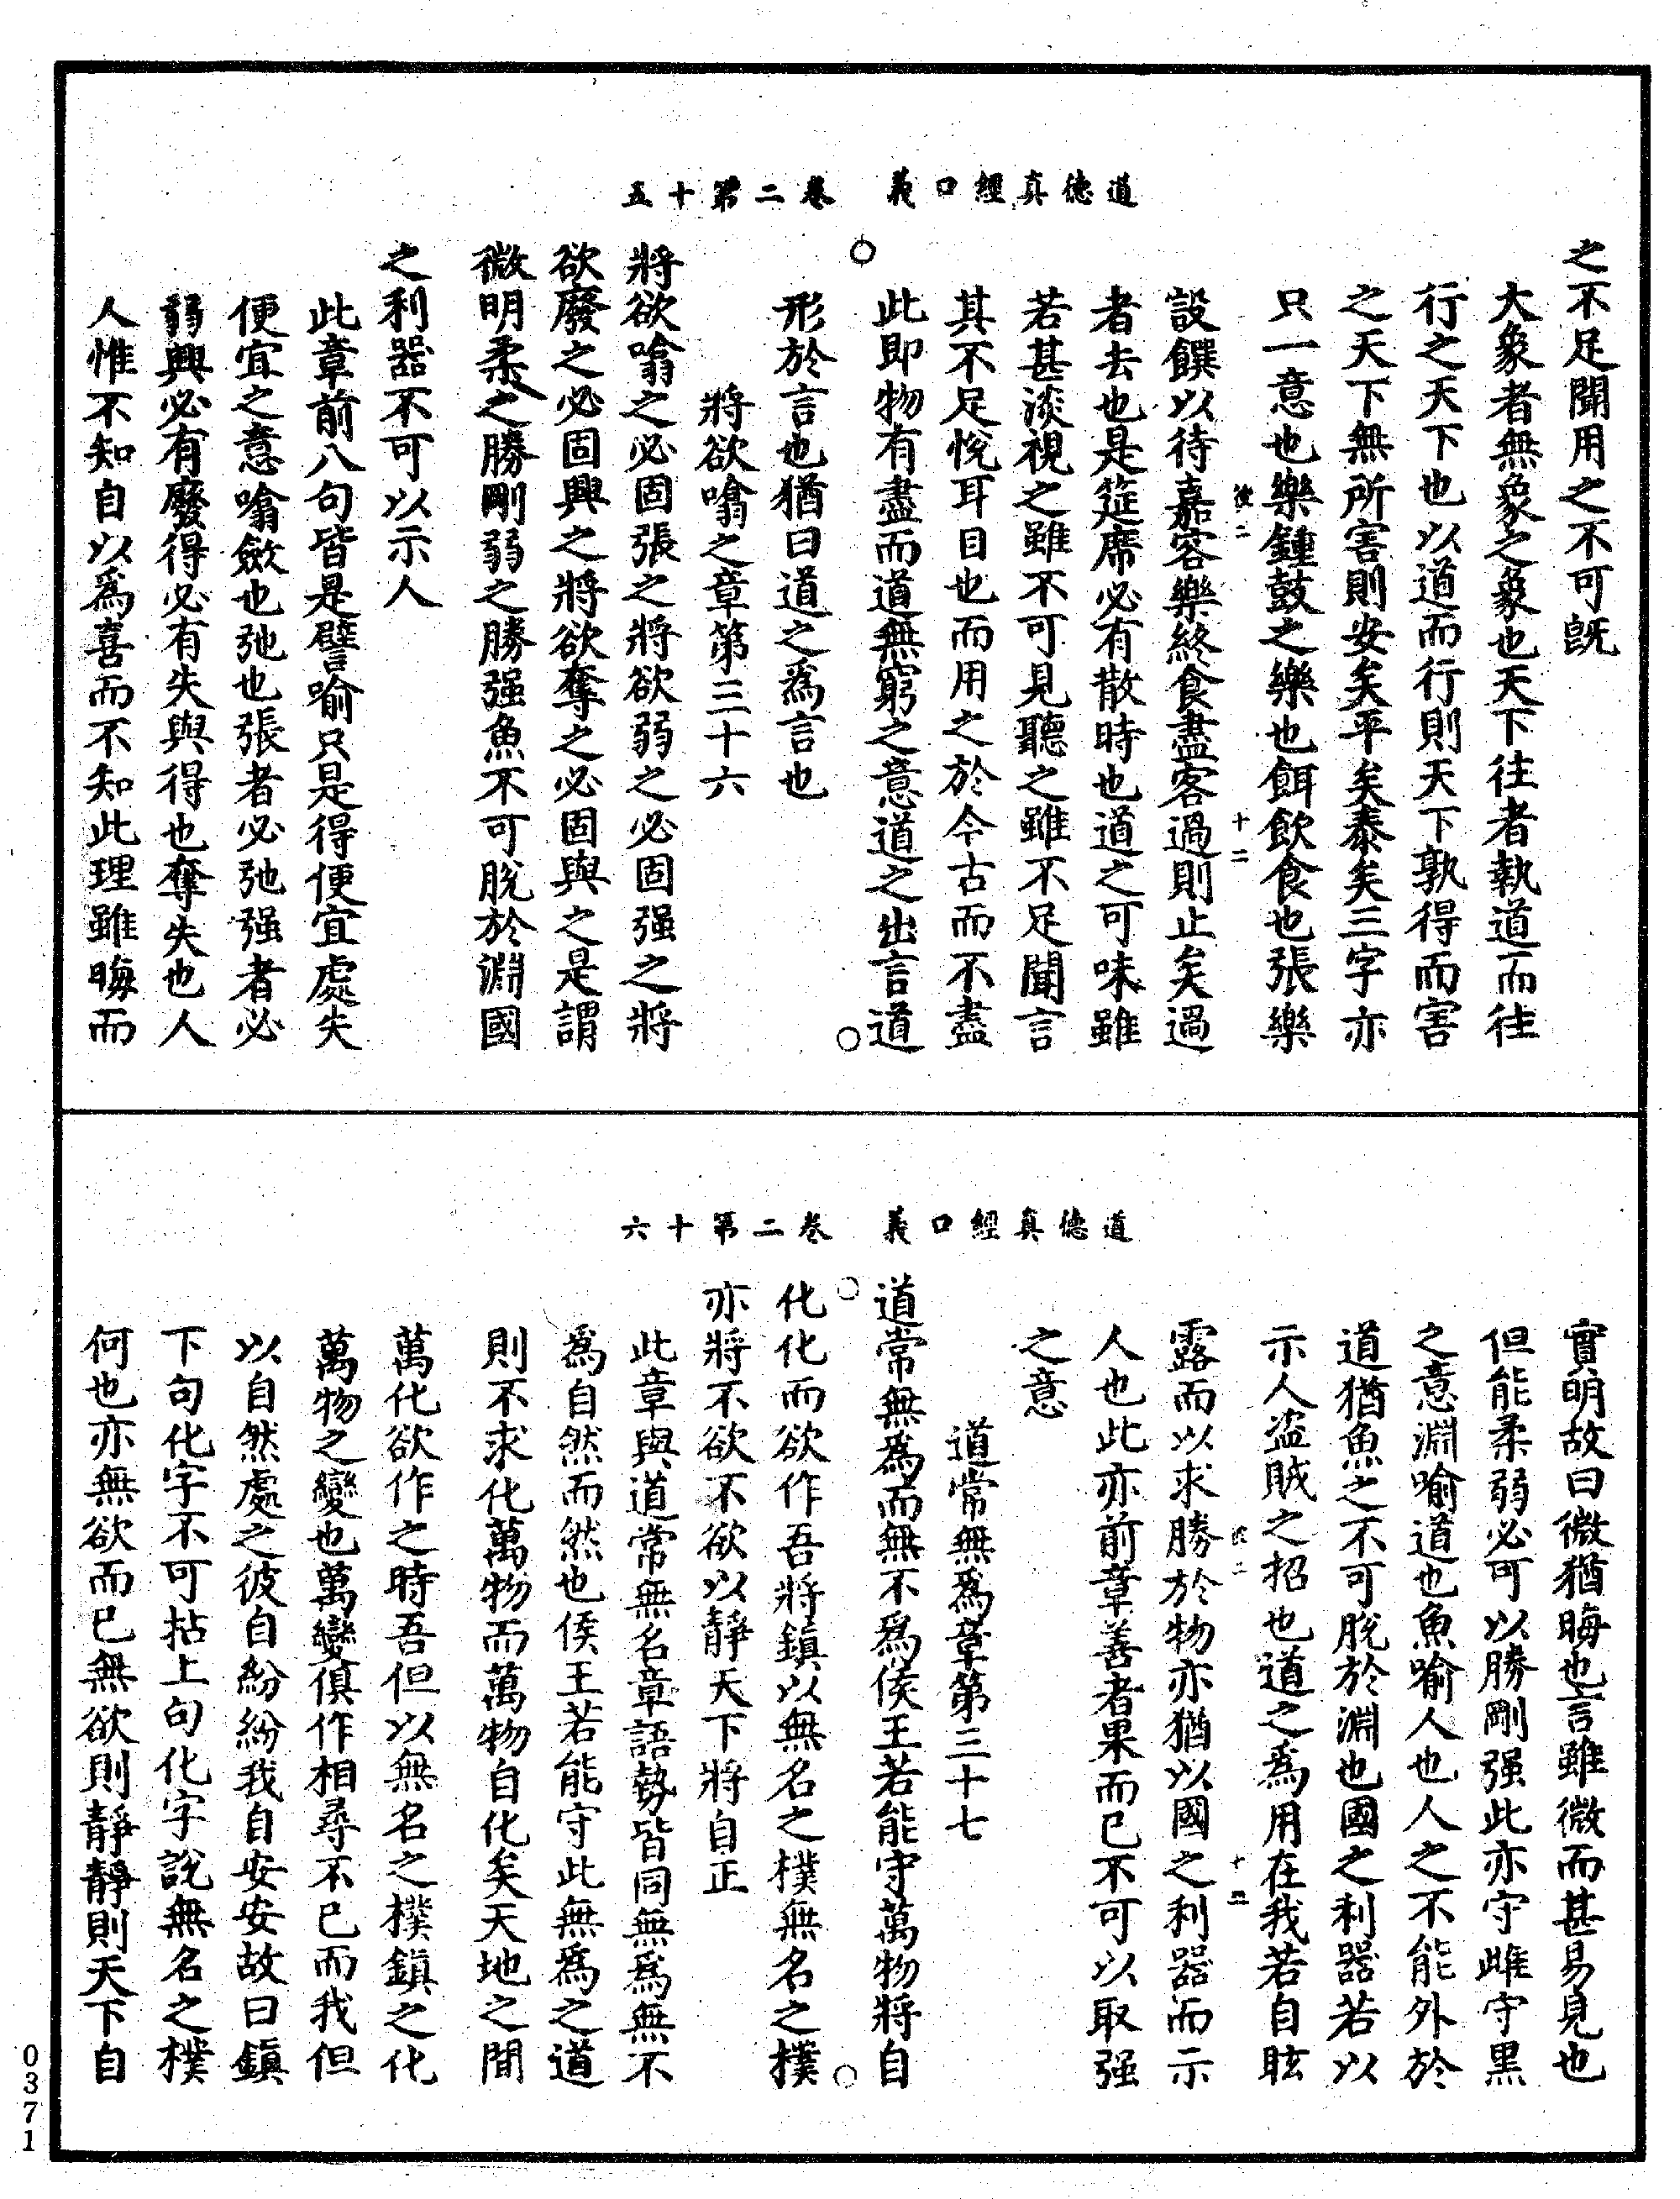 道德真經口義　卷二第十五
之不足聞用之不可旣
大象者無象之象也天下往者執道而往
行之天下也以道而行則天下孰得而害
之天下無所害則安矣平矣泰矣三字亦
只一意也樂鍾鼓之樂也餌飲食也張樂
設饌以待嘉客樂終食盡客過則止矣過
者去也是筵席必有散時也道之可味雖
若甚淡視之雖不可見聽之雖不足聞言
其不足悅耳目也而用之於今古而不盡
此即物有盡而道無窮之意道之出言道
形於言也猶曰道之爲言也
將欲噏之章第三十六
將欲噏之必固張之將欲弱之必固强之將
欲廢之必固興之將欲奪之必固與之是謂
微明柔之勝剛弱之勝强魚不可脫於淵國
之利器不可以示人
此章前八句皆是譬喻只是得便宜處失
便宜之意噏斂也弛也張者必弛强者必
弱興必有廢得必有失與得也奪失也人
人惟不知自以爲喜而不知此理雖晦而
道德真經口義　卷二第十六
實明故曰微猶晦也言雖微而甚易見也
但能柔弱必可以勝剛强此亦守雌守黑
之意淵喻道也魚喻人也人之不能外於
道猶魚之不可脫於淵也國之利器若以
示人盜賊之招也道之爲用在我若自眩
露而以求勝於物亦猶以國之利器而示
人也此亦前章善者果而已不可以取强
之意
道常無爲章第三十七
道常無爲而無不爲侯王若能守萬物將自
化化而欲作吾將鎮以無名之樸無名之樸
亦將不欲不欲以靜天下將自正
此章與道常無名章語勢皆同無爲無不
爲自然而然也侯王若能守此無爲之道
則不求化萬物而萬物自化矣天地之間
萬化欲作之時吾但以無名之樸鎮之化
萬物之變也萬變俱作相尋不已而我但
以自然處之彼自紛紛我自安安故曰鎮
下句化字不可拈上句化字說無名之樸
何也亦無欲而已無欲則靜靜則天下自
0371